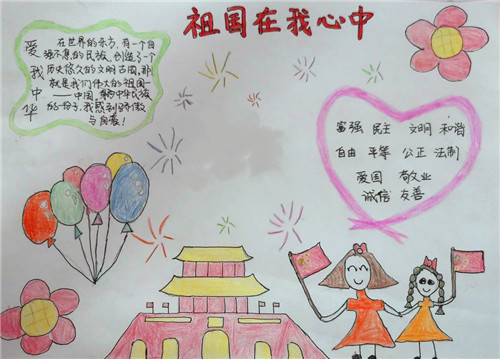 祖国在我心中
爱我中华
在世界的东方,有一个自
强不息的民族,创造了一个
历史悠久的文明古国,那
就是我们伟大的祖国—
——中国,中华民族
的一份子,我感到骄傲
与自豪!
富强 民主 文明 和谐
自由 平等 公正 法制
爱国 敬业
诚信 友善